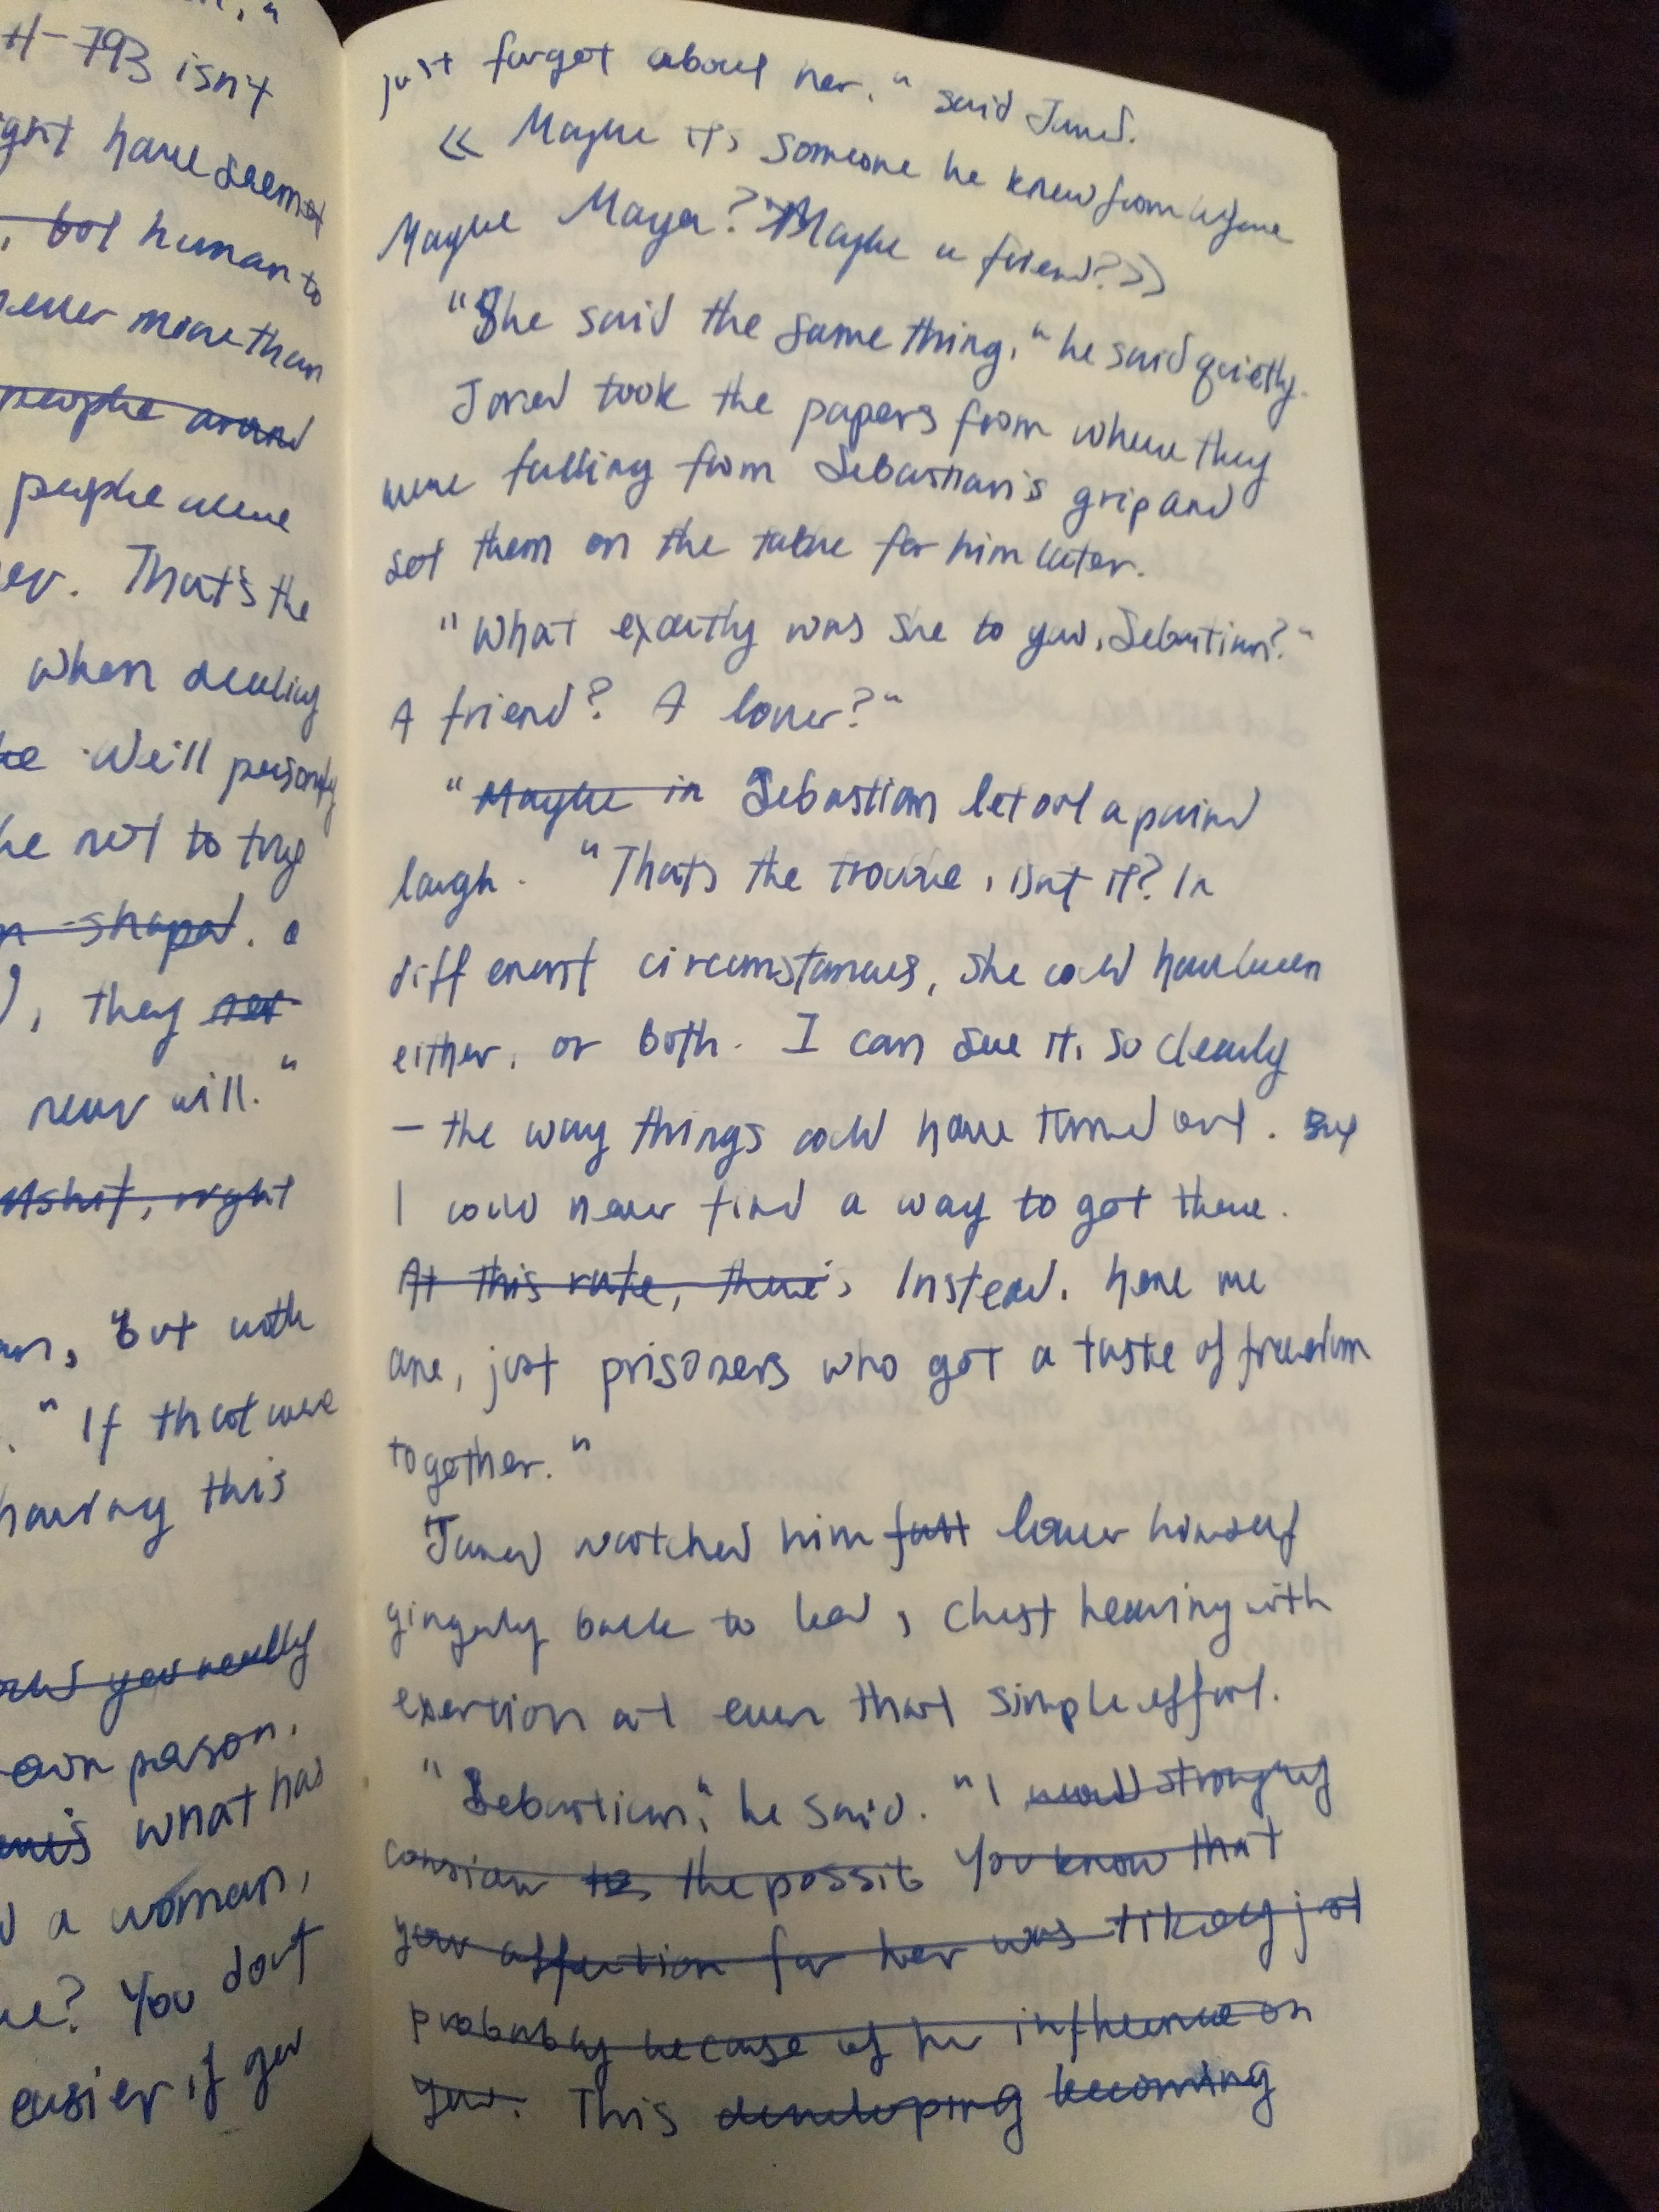 H-793 isn't
have seemed
, but human to
more than
people around
people were
. That's the
when dealing
We'll personally
not to try
shaped. a
, they
never will."
right
, But with
." If that were
having this
you really
own person.
what has
a woman,
? You don't
easier if you
just forget about her." said Jared.
« Maybe it's someone he knew from before
Maybe Maya? Maybe a friend?»
"She said the same thing," he said quietly.
Jared took the papers from where they
were falling from Sebastian's grip and
set them on the table for him later.
"What exactly was she to you, Sebastian?"
A friend? A lover?"
"Maybe in Sebastian let out a pained
laugh. "That's the trouble, isn't it? In
different circumstances, she could have been
either, or both. I can see it, so clearly
— the way things could have turned out. But
I could never find a way to get there.
At this rate, there's Instead, here we
are, just prisoners who got a taste of freedom
together."
Jared watched him fall lower himself
gingerly back to bed, chest heaving with
exertion at even that simple effort.
"Sebastian," he said. "I would strongly
consider the possib You know that
your affection for her was likely just
probably because of her influence on
you. This developing becoming